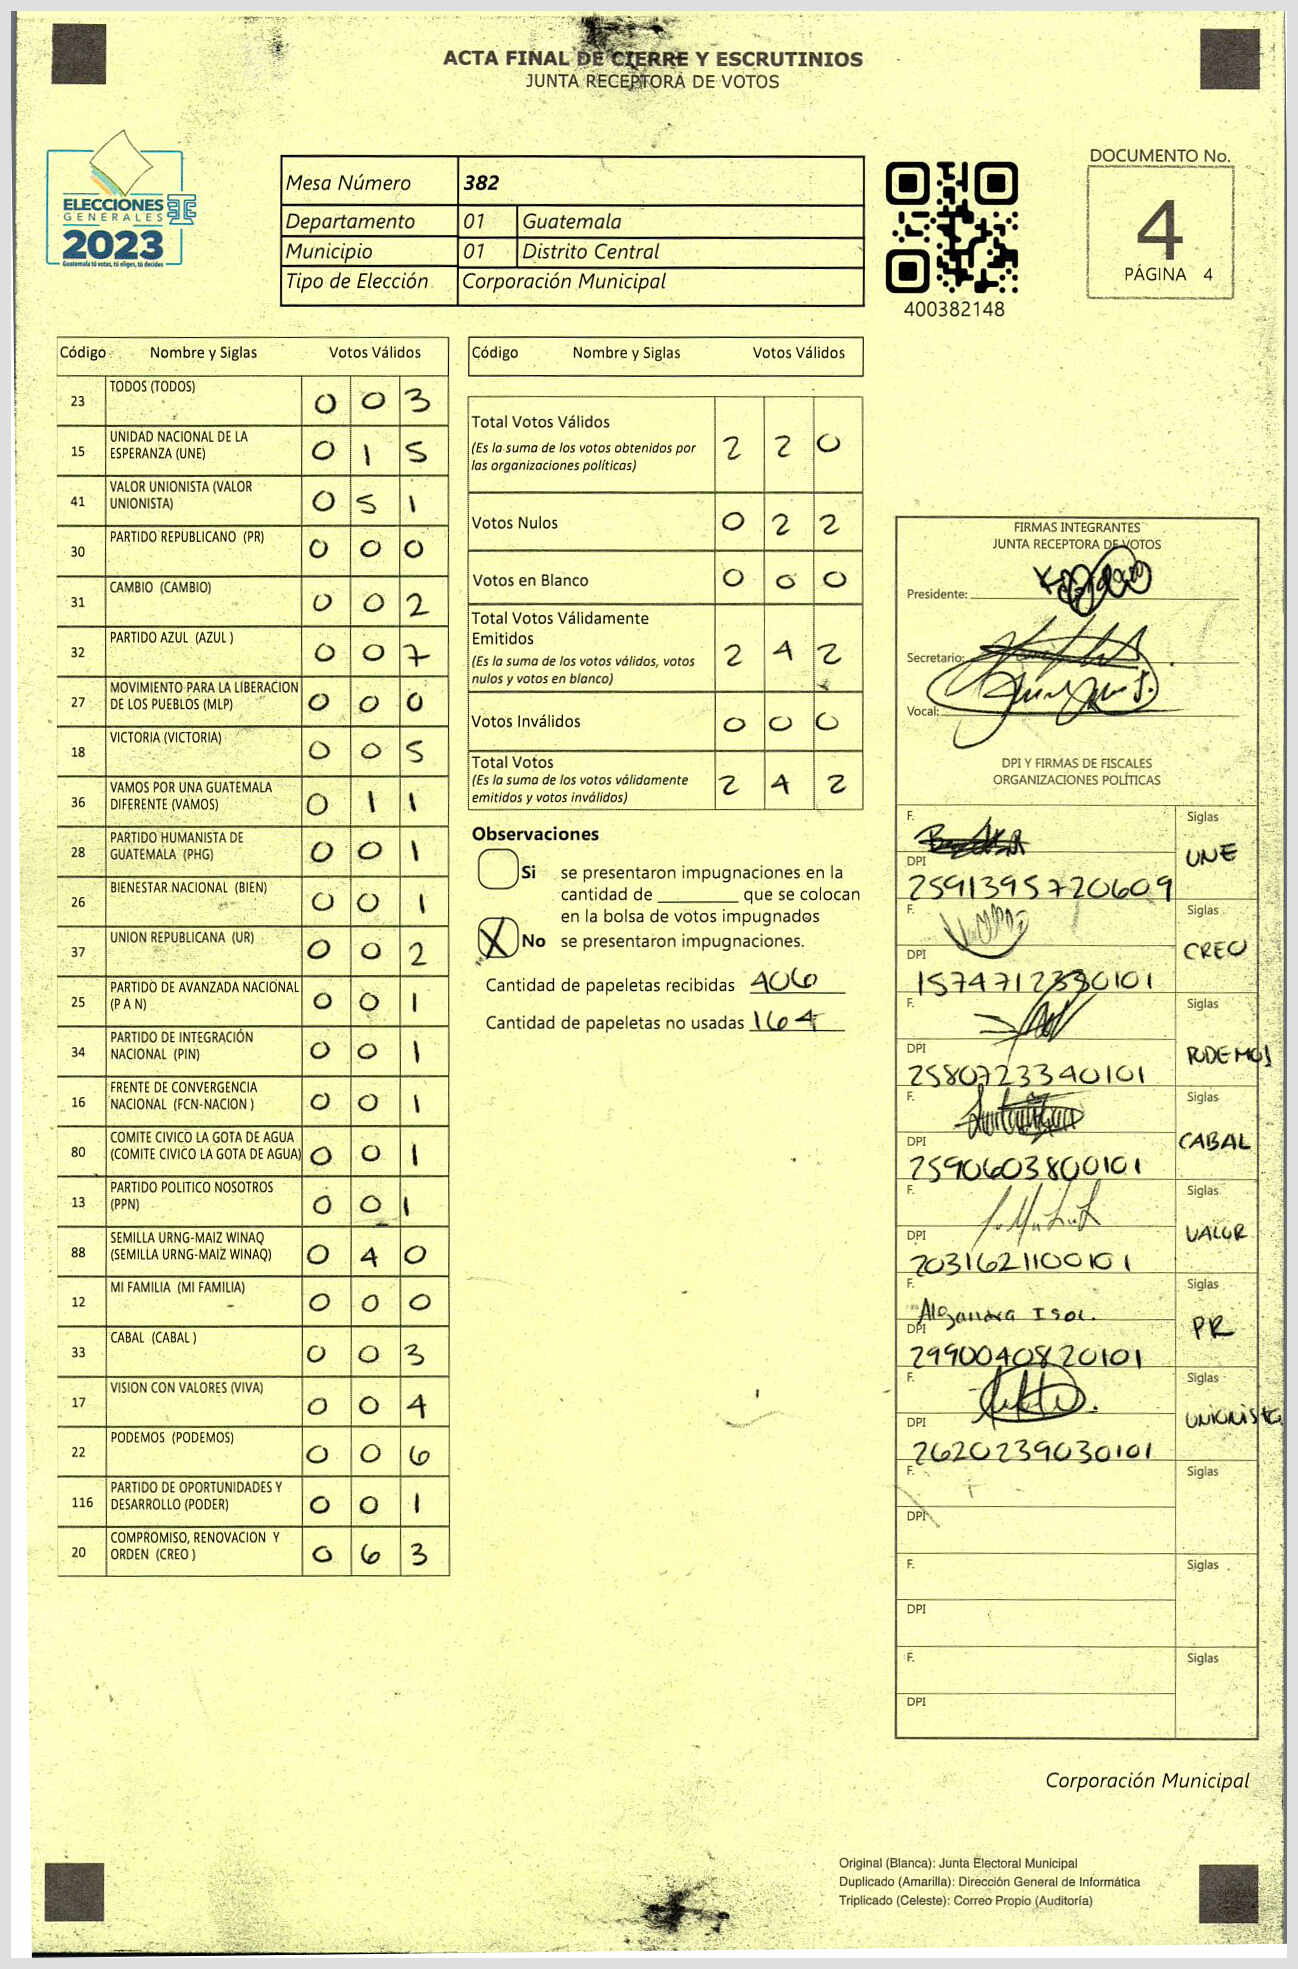 ACTA FINAL DE CIERRE Y ESCRUTINIOS
JUNTA RECEPTORA DE VOTOS
ELECCIONES
GENERALES
2023
Guatemala tú votas, tú eliges, tú decides
Mesa Número 382
Departamento 01 Guatemala
Municipio 01 Distrito Central
Tipo de Elección Corporación Municipal
400382148
DOCUMENTO No.
4
PÁGINA 4
Código Nombre y Siglas Votos Válidos
23 TODOS (TODOS) 0 0 3
15 UNIDAD NACIONAL DE LA ESPERANZA (UNE) 0 1 5
41 VALOR UNIONISTA (VALOR UNIONISTA) 0 5 1
30 PARTIDO REPUBLICANO (PR) 0 0 0
31 CAMBIO (CAMBIO) 0 0 2
32 PARTIDO AZUL (AZUL ) 0 0 7
27 MOVIMIENTO PARA LA LIBERACION DE LOS PUEBLOS (MLP) 0 0 0
18 VICTORIA (VICTORIA) 0 0 5
36 VAMOS POR UNA GUATEMALA DIFERENTE (VAMOS) 0 1 1
28 PARTIDO HUMANISTA DE GUATEMALA (PHG) 0 0 1
26 BIENESTAR NACIONAL (BIEN) 0 0 1
37 UNION REPUBLICANA (UR) 0 0 2
25 PARTIDO DE AVANZADA NACIONAL (P A N) 0 0 1
34 PARTIDO DE INTEGRACIÓN NACIONAL (PIN) 0 0 1
16 FRENTE DE CONVERGENCIA NACIONAL (FCN-NACION ) 0 0 1
80 COMITE CIVICO LA GOTA DE AGUA (COMITE CIVICO LA GOTA DE AGUA) 0 0 1
13 PARTIDO POLITICO NOSOTROS (PPN) 0 0 1
88 SEMILLA URNG-MAIZ WINAQ (SEMILLA URNG-MAIZ WINAQ) 0 4 0
12 MI FAMILIA (MI FAMILIA) 0 0 0
33 CABAL (CABAL ) 0 0 3
17 VISION CON VALORES (VIVA) 0 0 4
22 PODEMOS (PODEMOS) 0 0 6
116 PARTIDO DE OPORTUNIDADES Y DESARROLLO (PODER) 0 0 1
20 COMPROMISO, RENOVACION Y ORDEN (CREO ) 0 6 3
Código Nombre y Siglas Votos Válidos
Total Votos Válidos 2 2 0
(Es la suma de los votos obtenidos por
las organizaciones políticas)
Votos Nulos 0 2 2
Votos en Blanco 0 0 0
Total Votos Válidamente
Emitidos 2 4 2
(Es la suma de los votos válidos, votos
nulos y votos en blanco)
Votos Inválidos 0 0 0
Total Votos 2 4 2
(Es la suma de los votos válidamente
emitidos y votos inválidos)
Observaciones
Si se presentaron impugnaciones en la
cantidad de ________ que se colocan
en la bolsa de votos impugnados
X No se presentaron impugnaciones.
Cantidad de papeletas recibidas 406
Cantidad de papeletas no usadas 164
FIRMAS INTEGRANTES
JUNTA RECEPTORA DE VOTOS
Presidente:
Secretario:
Vocal:
DPI Y FIRMAS DE FISCALES
ORGANIZACIONES POLÍTICAS
F. Siglas
UNE
DPI
2591395720609
F. Siglas
CREO
DPI
1574712330101
F. Siglas
PODEMOS
DPI
2580723340101
F. Siglas
CABAL
DPI
2590603800101
F. Siglas
VALOR
DPI
2031621100101
F. Siglas
PR
DPI
2990040820101
F. Siglas
UNIONISTA
DPI
2620239030101
F. Siglas
DPI
F. Siglas
DPI
F. Siglas
DPI
Corporación Municipal
Original (Blanca): Junta Electoral Municipal
Duplicado (Amarilla): Dirección General de Informática
Triplicado (Celeste): Correo Propio (Auditoría)